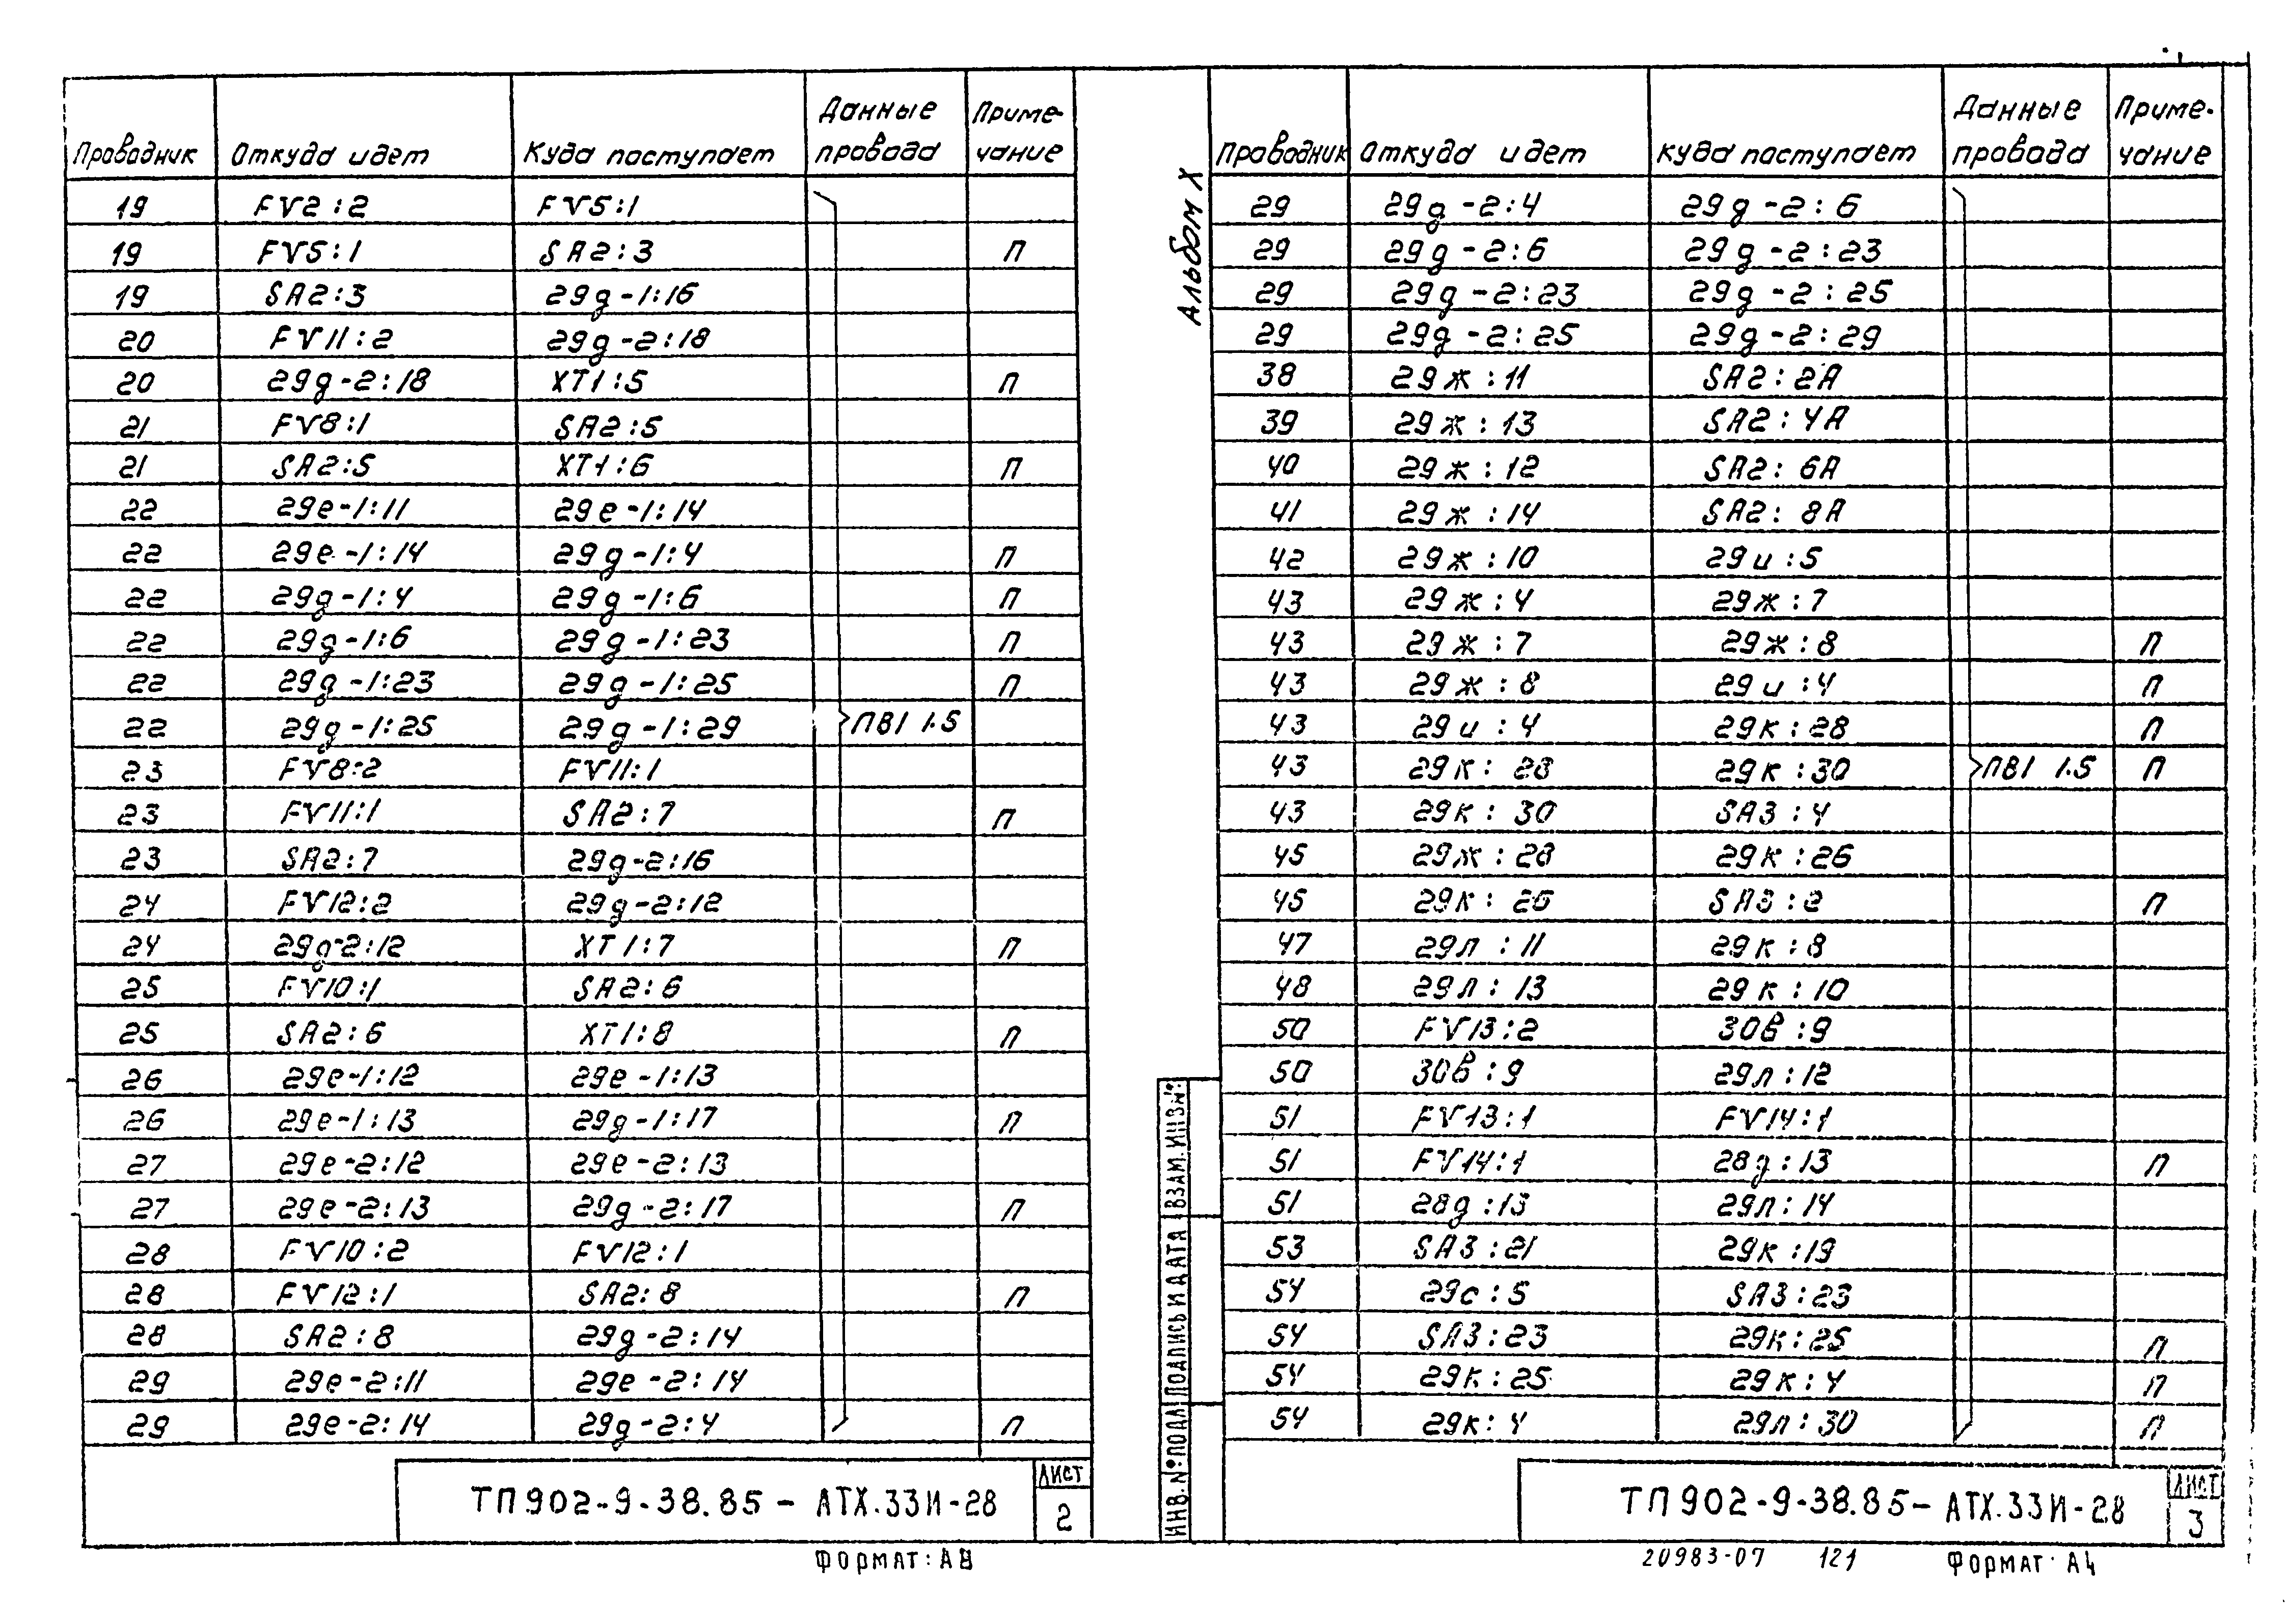 Проводник Откуда идет Куда поступает Данные провода Примечание
19 FV2:2 FV5:1
19 FV5:1 SA2:3 П
19 SA2:3 29g-1:16
20 FV11:2 29g-2:18
20 29g-2:18 XT1:5 П
21 FV8:1 SA2:5
21 SA2:5 XT1:6 П
22 29е-1:11 29е-1:14
22 29е-1:14 29g-1:4 П
22 29g-1:4 29g-1:6 П
22 29g-1:6 29g-1:23 П
22 29g-1:23 29g-1:25 П
22 29g-1:25 29g-1:29 ПВ1 1.5
23 FV8:2 FV11:1
23 FV11:1 SA2:7 П
23 SA2:7 29g-2:16
24 FV12:2 29g-2:12
24 29g-2:12 XT1:7 П
25 FV10:1 SA2:6
25 SA2:6 XT1:8 П
26 29е-1:12 29е-1:13
26 29е-1:13 29g-1:17 П
27 29е-2:12 29е-2:13
27 29е-2:13 29g-2:17 П
28 FV10:2 FV12:1
28 FV12:1 SA2:8 П
28 SA2:8 29g-2:14
29 29е-2:11 29е-2:14
29 29е-2:14 29g-2:4 П
ТП902-9-38.85- АТХ.33И-28
ЛИСТ
2
Формат: А
Альбом X
Проводник Откуда идет Куда поступает Данные провода Примечание
29 29g-2:4 29g-2:6
29 29g-2:6 29g-2:23
29 29g-2:23 29g-2:25
29 29g-2:25 29g-2:29
38 29ж:11 SA2:2A
39 29ж:13 SA2:4A
40 29ж:12 SA2:6A
41 29ж:14 SA2:8A
42 29ж:10 29и:5
43 29ж:4 29ж:7
43 29ж:7 29ж:8 П
43 29ж:8 29и:4 П
43 29и:4 29к:28 П
43 29к:28 29к:30 ПВ1 1.5 П
43 29к:30 SA3:4
45 29ж:28 29к:26
45 29к:26 SA3:2 П
47 29л:11 29к:8
48 29л:13 29к:10
50 FV13:2 30в:9
50 30в:9 29л:12
51 FV13:1 FV14:1
51 FV14:1 28g:13 П
51 28g:13 29л:14
53 SA3:21 29к:19
54 29с:5 SA3:23
54 SA3:23 29к:25 П
54 29к:25 29к:4 П
54 29к:4 29л:30 П
ИНВ.N°ПОДЛ ПОДПИСЬ И ДАТА ВЗАМ.ИНВN°
ТП902-9-38.85- АТХ.33И-28
ЛИСТ
3
20983-07 121 Формат: А4